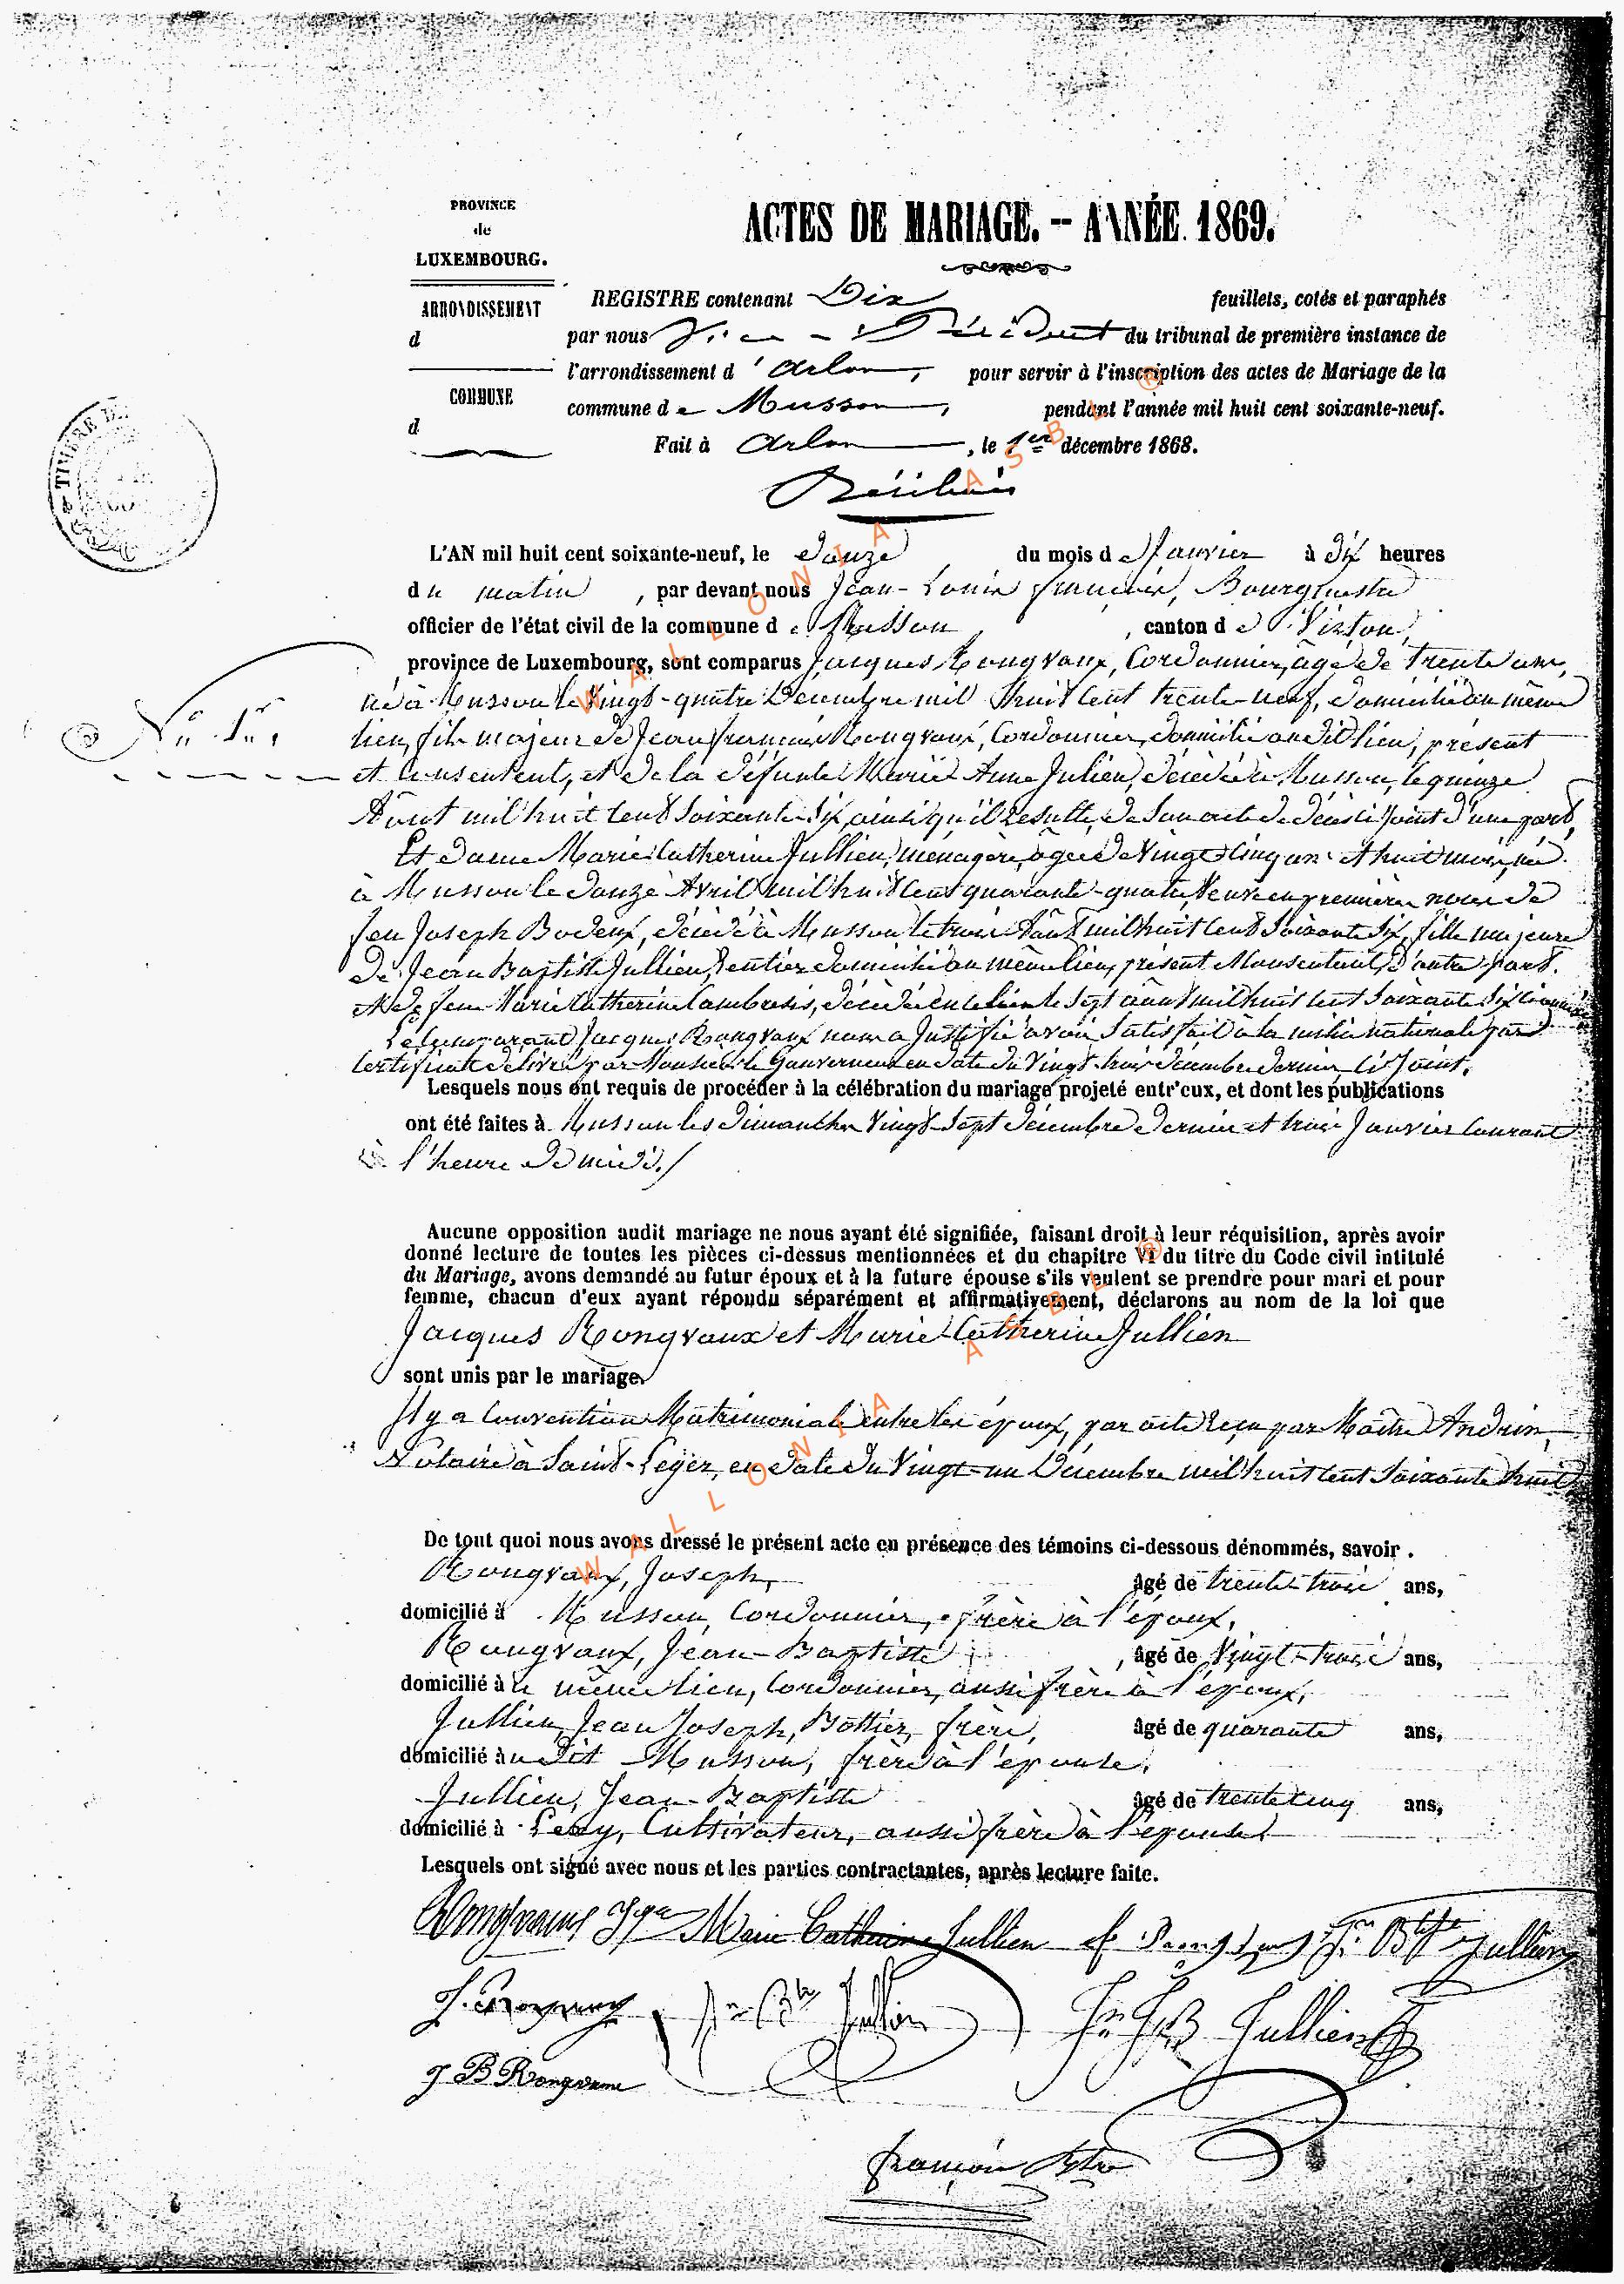 PROVINCE
de
LUXEMBOURG.
ARRONDISSEMENT
d
COMMUNE
d
ACTES DE MARIAGE. -- ANNÉE 1869.
REGISTRE contenant Dix feuillets, cotés et paraphés
par nous Vice-Président du tribunal de première instance de
l'arrondissement d'Arlon, pour servir à l'inscription des actes de Mariage de la
commune de Musson, pendant l'année mil huit cent soixante-neuf.
Fait à Arlon, le 1er décembre 1868.
TIMBRE DE
N° 1er.
L'AN mil huit cent soixante-neuf, le Douze du mois de Janvier à Dix heures
du matin, par devant nous Jean-Louis François, Bourgmestre
officier de l'état civil de la commune de Musson, canton de Virton,
province de Luxembourg, sont comparus Jacques Rongvaux, Cordonnier, âgé de trente ans,
né à Musson le Vingt-quatre Décembre mil huit cent trente-neuf, domicilié au même
lieu, fils majeur de Jean François Rongvaux, Cordonnier, domicilié audit lieu, présent
et consentent, et de la défunte Marie Anne Julien, décédée à Musson, le quinze
Août mil huit cent Soixante-Six, ainsi qu'il resulte de son acte de décès ci joint d'une part,
Et dame Marie Catherine Jullien, ménagère, âgée de Vingt Cinq ans et huit mois, née
à Musson le Douze Avril mil huit cent quarante-quatre, Veuve en première noces de
feu Joseph Bodeux, décédé à Musson le trois Août mil huit cent Soixante Six, fille majeure
de Jean Baptiste Jullien, Rentier domicilié au même lieu, présent et consentent, d'autre part.
et de feue Marie Catherine Cambrasis, décédée en ce lieu le Sept août mil huit cent Soixante Six
Le comparant Jacques Rongvaux nous a Justifié avoir Satisfait à la milice nationale par
Certificat délivré par Monsieur le Gouverneur en date du Vingt-trois décembre dernier, ci-Joint.
Lesquels nous ont requis de procéder à la célébration du mariage projeté entr'eux, et dont les publications
ont été faites à Musson les Dimanches Vingt-Sept Décembre Dernier et trois Janvier Courant
à l'heure de midi./
Aucune opposition audit mariage ne nous ayant été signifiée, faisant droit à leur réquisition, après avoir
donné lecture de toutes les pièces ci-dessus mentionnées et du chapitre VI du titre du Code civil intitulé
du Mariage, avons demandé au futur époux et à la future épouse s'ils veulent se prendre pour mari et pour
femme, chacun d'eux ayant répondu séparément et affirmativement, déclarons au nom de la loi que
Jacques Rongvaux et Marie-Catherine Jullien
sont unis par le mariage
Il y a Convention Matrimoniale entre les époux, par acte reçu par Maître Andrin,
Notaire à Saint-Leger, en date du Vingt-un Décembre mil huit cent Soixante huit
De tout quoi nous avons dressé le présent acte en présence des témoins ci-dessous dénommés, savoir.
Rongvaux, Joseph, âgé de trente-trois ans,
domicilié à Musson, Cordonnier, frère à l'époux,
Rongvaux, Jean-Baptiste, âgé de Vingt-trois ans,
domicilié à ce même lieu, Cordonnier, aussi frère à l'époux,
Jullien, Jean Joseph, Bottier, frère, âgé de quarante ans,
domicilié audit Musson, frère à l'épouse.
Jullien, Jean-Baptiste âgé de trente cinq ans,
domicilié à Cultivateur, aussi frère à l'épouse.
Lesquels ont signé avec nous et les parties contractantes, après lecture faite.
Rongvaux Jques Marie Catherine Jullien Jn Btte Jullien
Jn Bte Jullien Jn Jph Jullien
J B Rongvaux
François Btre
WALLONIA ASBL ®
WALLONIA ASBL ®